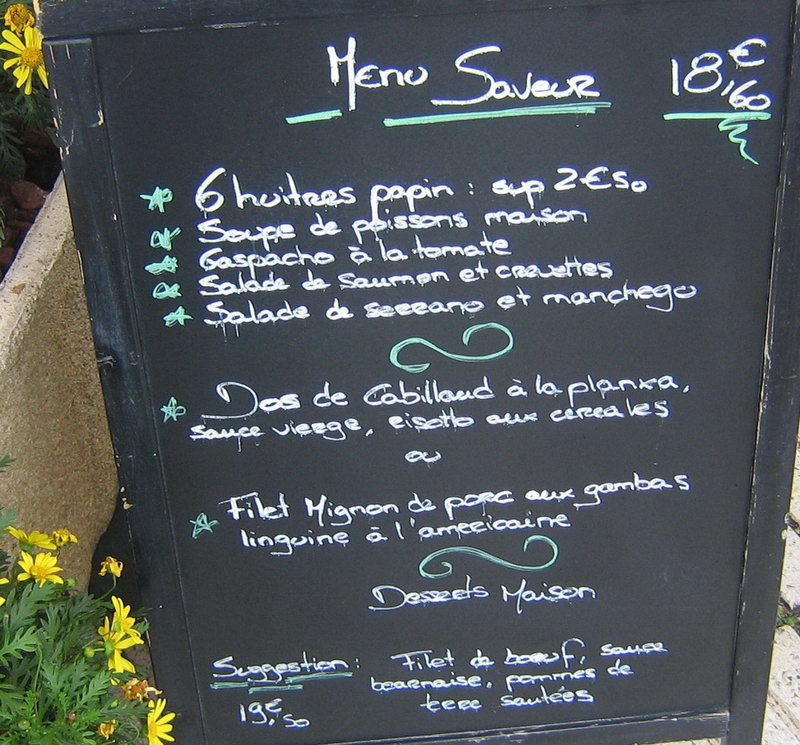 Menu Saveur 18,€60
6 huitres papin : sup 2€50
Soupe de poissons maison
Gaspacho à la tomate
Salade de saumon et crevettes
Salade de serrano et manchego
Dos de Cabillaud à la planxa,
sauce vierge, risotto aux cereales
ou
Filet Mignon de porc aux gambas
linguine à l'americaine
Desserts Maison
Suggestion : Filet de bœuf, sauce
bearnaise, pommes de
19,€50 terre sautées